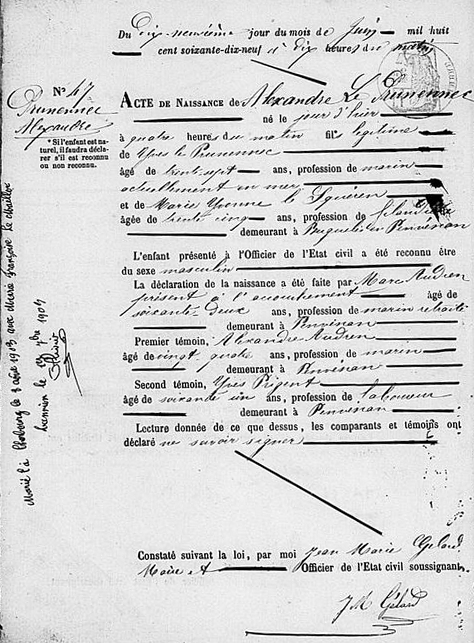 Du dix neuvième jour du mois de Juin mil huit
cent soixante-dix-neuf à dix heures du matin
N° 47
Prunennec
Alexandre
* Si l'enfant est na-
turel, il faudra décla-
rer s'il est reconnu
ou non reconnu.
ACTE DE NAISSANCE de Alexandre Le Prunennec
né le jour d'hier
à quatre heures du matin fils légitime
de Yves Le Prunennec
âgé de trente-sept ans, profession de marin
actuellement en mer
et de Marie Yvonne le
âgée de trente cinq ans, profession de filandière
demeurant à en Penvénan
L'enfant présenté à l'Officier de l'Etat civil a été reconnu être
du sexe masculin
La déclaration de la naissance a été faite par Marc Audren
présent à l'accouchement âgé de
soixante-deux ans, profession de marin retraité
demeurant à Penvénan
Premier témoin, Alexandre Audren
âgé de vingt quatre ans, profession de marin
demeurant à Penvénan
Second témoin, Yves Prigent
âgé de soixante un ans, profession de laboureur
demeurant à Penvénan
Lecture donnée de ce que dessus, les comparants et témoins ont
déclaré ne savoir signer
Constaté suivant la loi, par moi Jean Marie Gélard
Maire et Officier de l'Etat civil soussignant
J M Gélard
Marié à Cherbourg le 3 1903 avec Maria Françoise le
le 1904